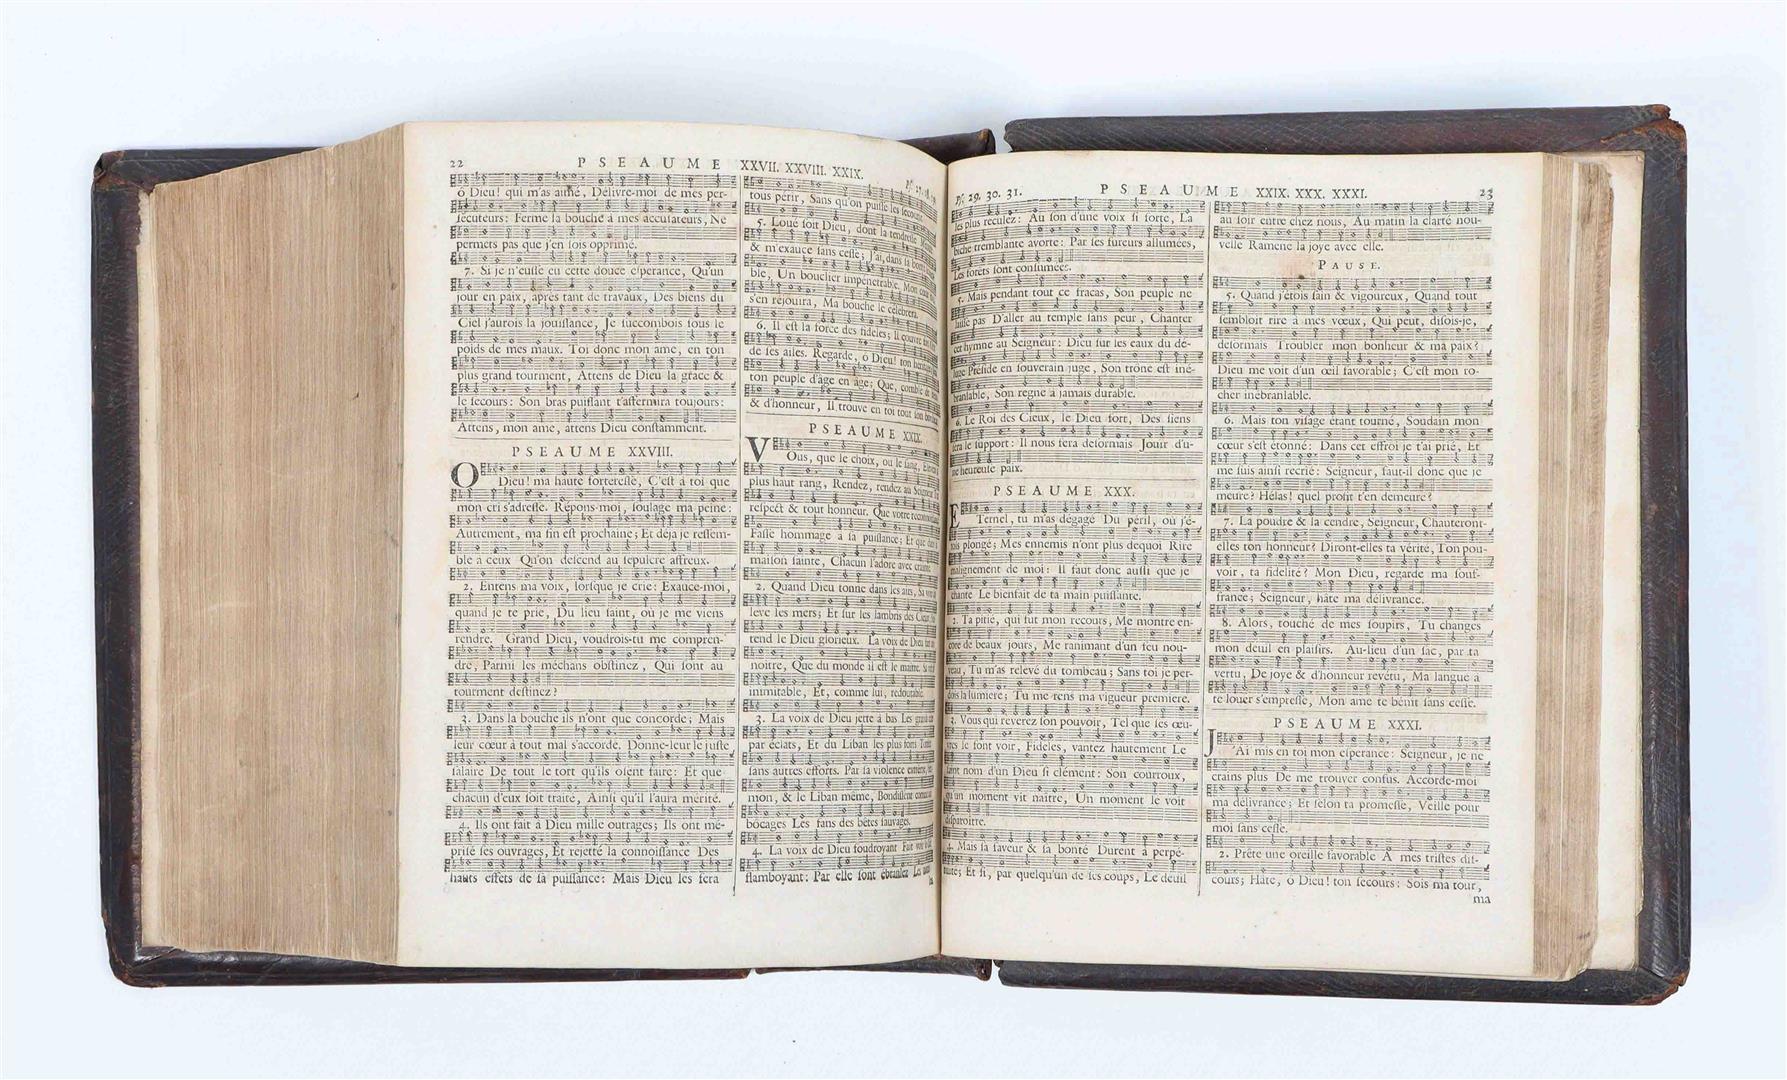 22 PSEAUME XXVII. XXVIII. XXIX.
ô Dieu! qui m'as aimé, Délivre-moi de mes per-
ſécuteurs: Ferme la bouche à mes accuſateurs, Ne
permets pas que j'en ſois opprimé.
7. Si je n'euſſe eu cette douce eſperance, Qu'un
jour en paix, après tant de travaux, Des biens du
Ciel j'aurois la jouïſſance, Je ſuccombois ſous le
poids de mes maux. Toi donc mon ame, en ton
plus grand tourment, Attens de Dieu la grace &
le ſecours: Son bras puiſſant t'affermira toujours:
Attens, mon ame, attens Dieu conſtamment.
PSEAUME XXVIII.
O Dieu! ma haute fortereſſe, C'eſt à toi que
mon cri s'adreſſe. Répons-moi, ſoulage ma peine:
Autrement, ma fin eſt prochaine; Et déja je reſſem-
ble à ceux Qu'on deſcend au ſepulcre affreux.
2. Entens ma voix, lorſque je crie: Exauce-moi,
quand je te prie, Du lieu ſaint, où je me viens
rendre. Grand Dieu, voudrois-tu me compren-
dre, Parmi les méchans obſtinez, Qui ſont au
tourment deſtinez?
3. Dans la bouche ils n'ont que concorde; Mais
leur cœur à tout mal s'accorde. Donne-leur le juſte
ſalaire De tout le tort qu'ils oſent faire: Et que
chacun d'eux ſoit traité, Ainſi qu'il l'aura mérité.
4. Ils ont fait à Dieu mille outrages; Ils ont mé-
priſé ſes ouvrages, Et rejetté la connoiſſance Des
hauts effets de ſa puiſſance: Mais Dieu les fera
tous périr, Sans qu'on puiſſe les ſecourir.
5. Loué ſoit Dieu, dont la tendreſſe
& m'exauce ſans ceſſe; J'ai, dans ſa bonté
ble, Un bouclier impénetrable, Mon cœur
s'en réjouïra, Ma bouche le célébrera.
6. Il eſt la force des fideles; Il couvre
de ſes aîles. Regarde, ô Dieu! ton héritage
ton peuple d'âge en âge; Que, comblé
& d'honneur, Il trouve en toi tout ſon bonheur
PSEAUME XXIX.
VOus, que le choix, ou le ſang,
plus haut rang, Rendez, rendez au Seigneur
reſpect & tout honneur. Que votre reconnoiſſance
Faſſe hommage à ſa puiſſance; Et que dans
maiſon ſainte, Chacun l'adore avec crainte.
2. Quand Dieu tonne dans les airs, Sa voix
leve les mers; Et ſur les lambris des Cieux,
tend le Dieu glorieux. La voix de Dieu
noître, Que du monde il eſt le maître. Sa voix
inimitable, Et, comme lui, redoutable.
3. La voix de Dieu jette à bas Les grands
par éclats, Et du Liban les plus forts
ſans autres efforts. Par ſa violence
mon, & le Liban même, Bondiſſent
bocages Les fans des bêtes ſauvages.
4. La voix de Dieu foudroyant Fait
flamboyant: Par elle ſont ébranlez Les
Pſ. 29. 30. 31. PSEAUME XXIX. XXX. XXXI. 23
les plus reculez: Au ſon d'une voix ſi forte, La
biche tremblante avorte: Par ſes fureurs allumées,
Les forêts ſont conſumées.
5. Mais pendant tout ce fracas, Son peuple ne
laiſſe pas D'aller au temple ſans peur, Chanter
cet hymne au Seigneur: Dieu ſur les eaux du dé-
luge Préſide en ſouverain juge, Son trône eſt iné-
branlable, Son regne à jamais durable.
6. Le Roi des Cieux, le Dieu fort, Des ſiens
ſera le ſupport: Il nous fera déſormais Jouïr d'u-
ne heureuſe paix.
PSEAUME XXX.
ETernel, tu m'as dégagé Du péril, où j'é-
tois plongé; Mes ennemis n'ont plus dequoi Rire
malignement de moi: Il faut donc auſſi que je
chante Le bienfait de ta main puiſſante.
2. Ta pitié, qui fut mon recours, Me montre en-
core de beaux jours, Me ranimant d'un feu nou-
veau, Tu m'as relevé du tombeau; Sans toi je per-
dois la lumiere; Tu me rens ma vigueur premiere.
3. Vous qui réverez ſon pouvoir, Tel que ſes œu-
vres le font voir, Fideles, vantez hautement Le
ſaint nom d'un Dieu ſi clément: Son courroux,
qu'un moment vit naître, Un moment le voit
diſparoître.
4. Mais ſa faveur & ſa bonté Durent à perpé-
tuité; Et ſi, par quelqu'un de ſes coups, Le deuil
au ſoir entre chez nous, Au matin la clarté nou-
velle Ramene la joye avec elle.
PAUSE.
5. Quand j'étois ſain & vigoureux, Quand tout
ſembloit rire à mes vœux, Qui peut, diſois-je,
déſormais Troubler mon bonheur & ma paix?
Dieu me voit d'un œil favorable; C'eſt mon ro-
cher inébranlable.
6. Mais ton viſage étant tourné, Soudain mon
cœur s'eſt étonné: Dans cet effroi je t'ai prié, Et
me ſuis ainſi recrié: Seigneur, faut-il donc que je
meure? Hélas! quel profit t'en demeure?
7. La poudre & la cendre, Seigneur, Chanteront-
elles ton honneur? Diront-elles ta vérité, Ton pou-
voir, ta fidelité? Mon Dieu, regarde ma ſouf-
france; Seigneur, hâte ma délivrance.
8. Alors, touché de mes ſoupirs, Tu changes
mon deuil en plaiſirs. Au-lieu d'un ſac, par ta
vertu, De joye & d'honneur revêtu, Ma langue à
te louer s'empreſſe, Mon ame te bénit ſans ceſſe.
PSEAUME XXXI.
J'Ai mis en toi mon eſperance: Seigneur, je ne
crains plus De me trouver confus. Accorde-moi
ma délivrance; Et ſelon ta promeſſe, Veille pour
moi ſans ceſſe.
2. Prête une oreille favorable A mes triſtes diſ-
cours; Hâte, ô Dieu! ton ſecours: Sois ma tour,
ma